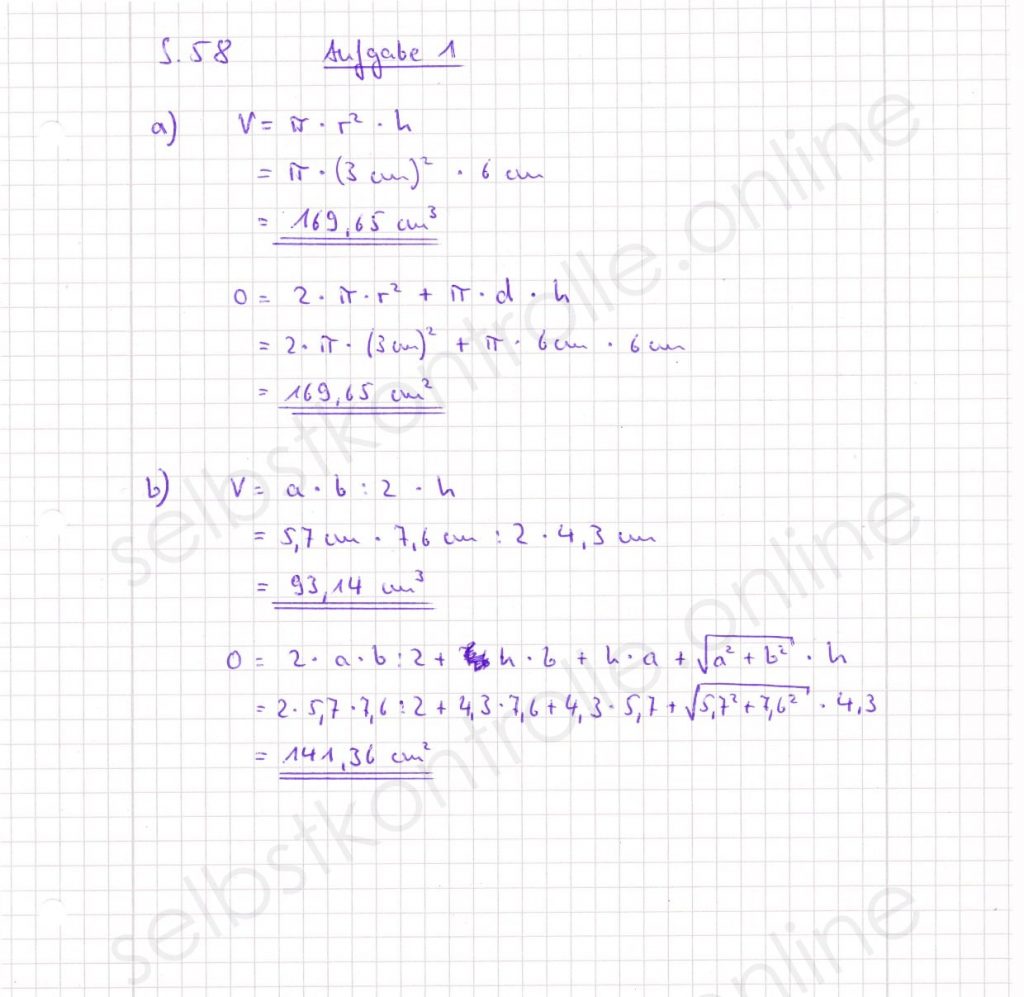 S. 58 Aufgabe 1
a) V = π · r² · h
= π · (3 cm)² · 6 cm
= 169,65 cm³
O = 2 · π · r² + π · d · h
= 2 · π · (3 cm)² + π · 6 cm · 6 cm
= 169,65 cm²
b) V = a · b : 2 · h
= 5,7 cm · 7,6 cm : 2 · 4,3 cm
= 93,14 cm³
O = 2 · a · b : 2 + h · b + h · a + √(a² + b²) · h
= 2 · 5,7 · 7,6 : 2 + 4,3 · 7,6 + 4,3 · 5,7 + √(5,7² + 7,6²) · 4,3
= 141,36 cm²
selbstkontrolle.online
selbstkontrolle.online
selbstkontrolle.online